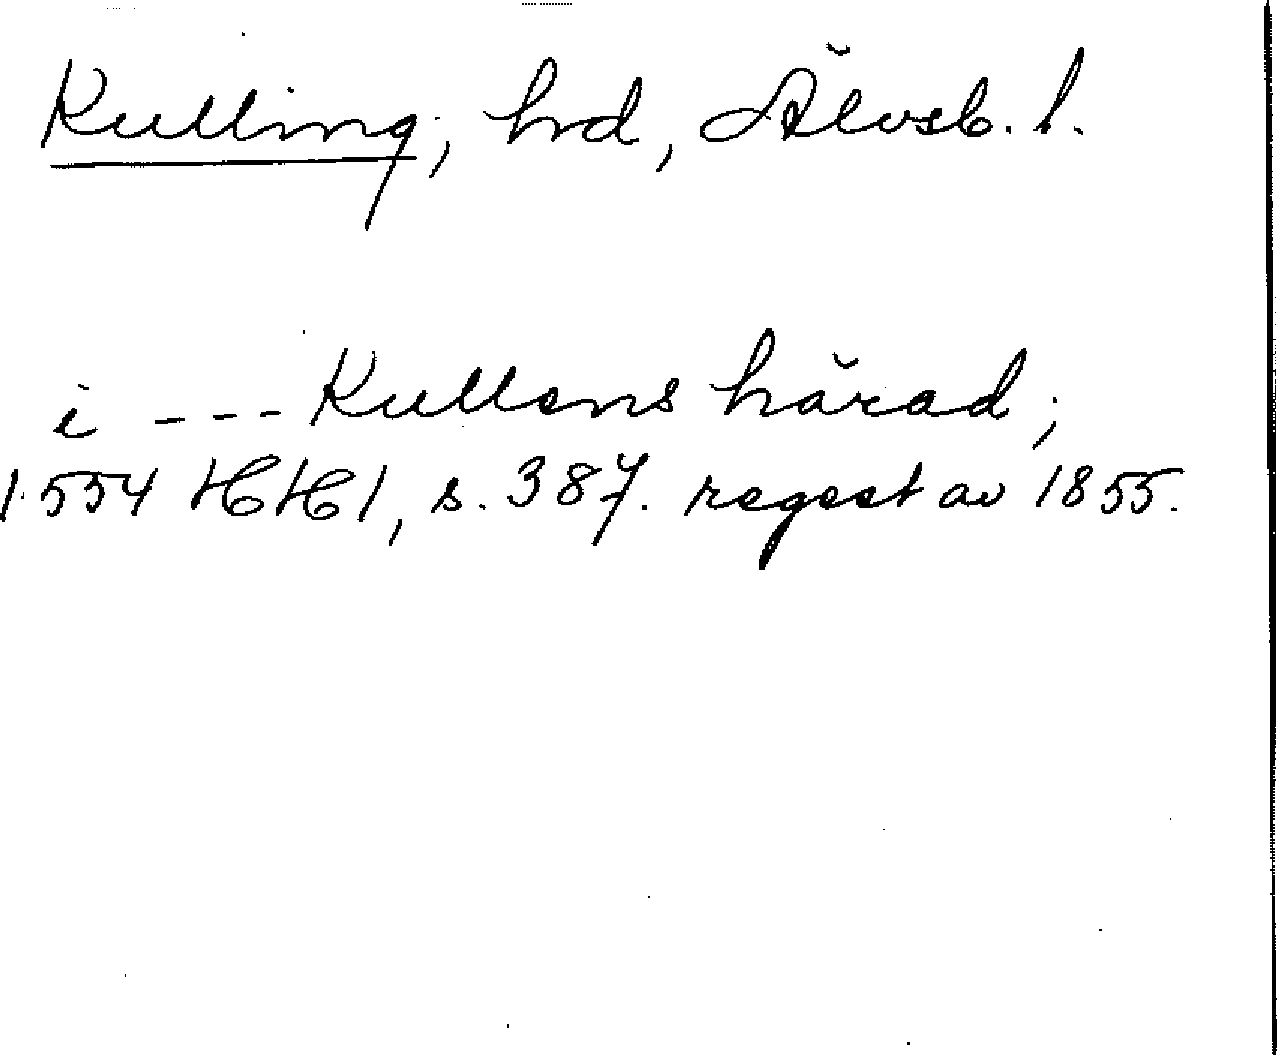 Kulling, hrd, Älvsb. l.
i --- Kullens härad;
1554 HH1, s. 387. regest av 1855.